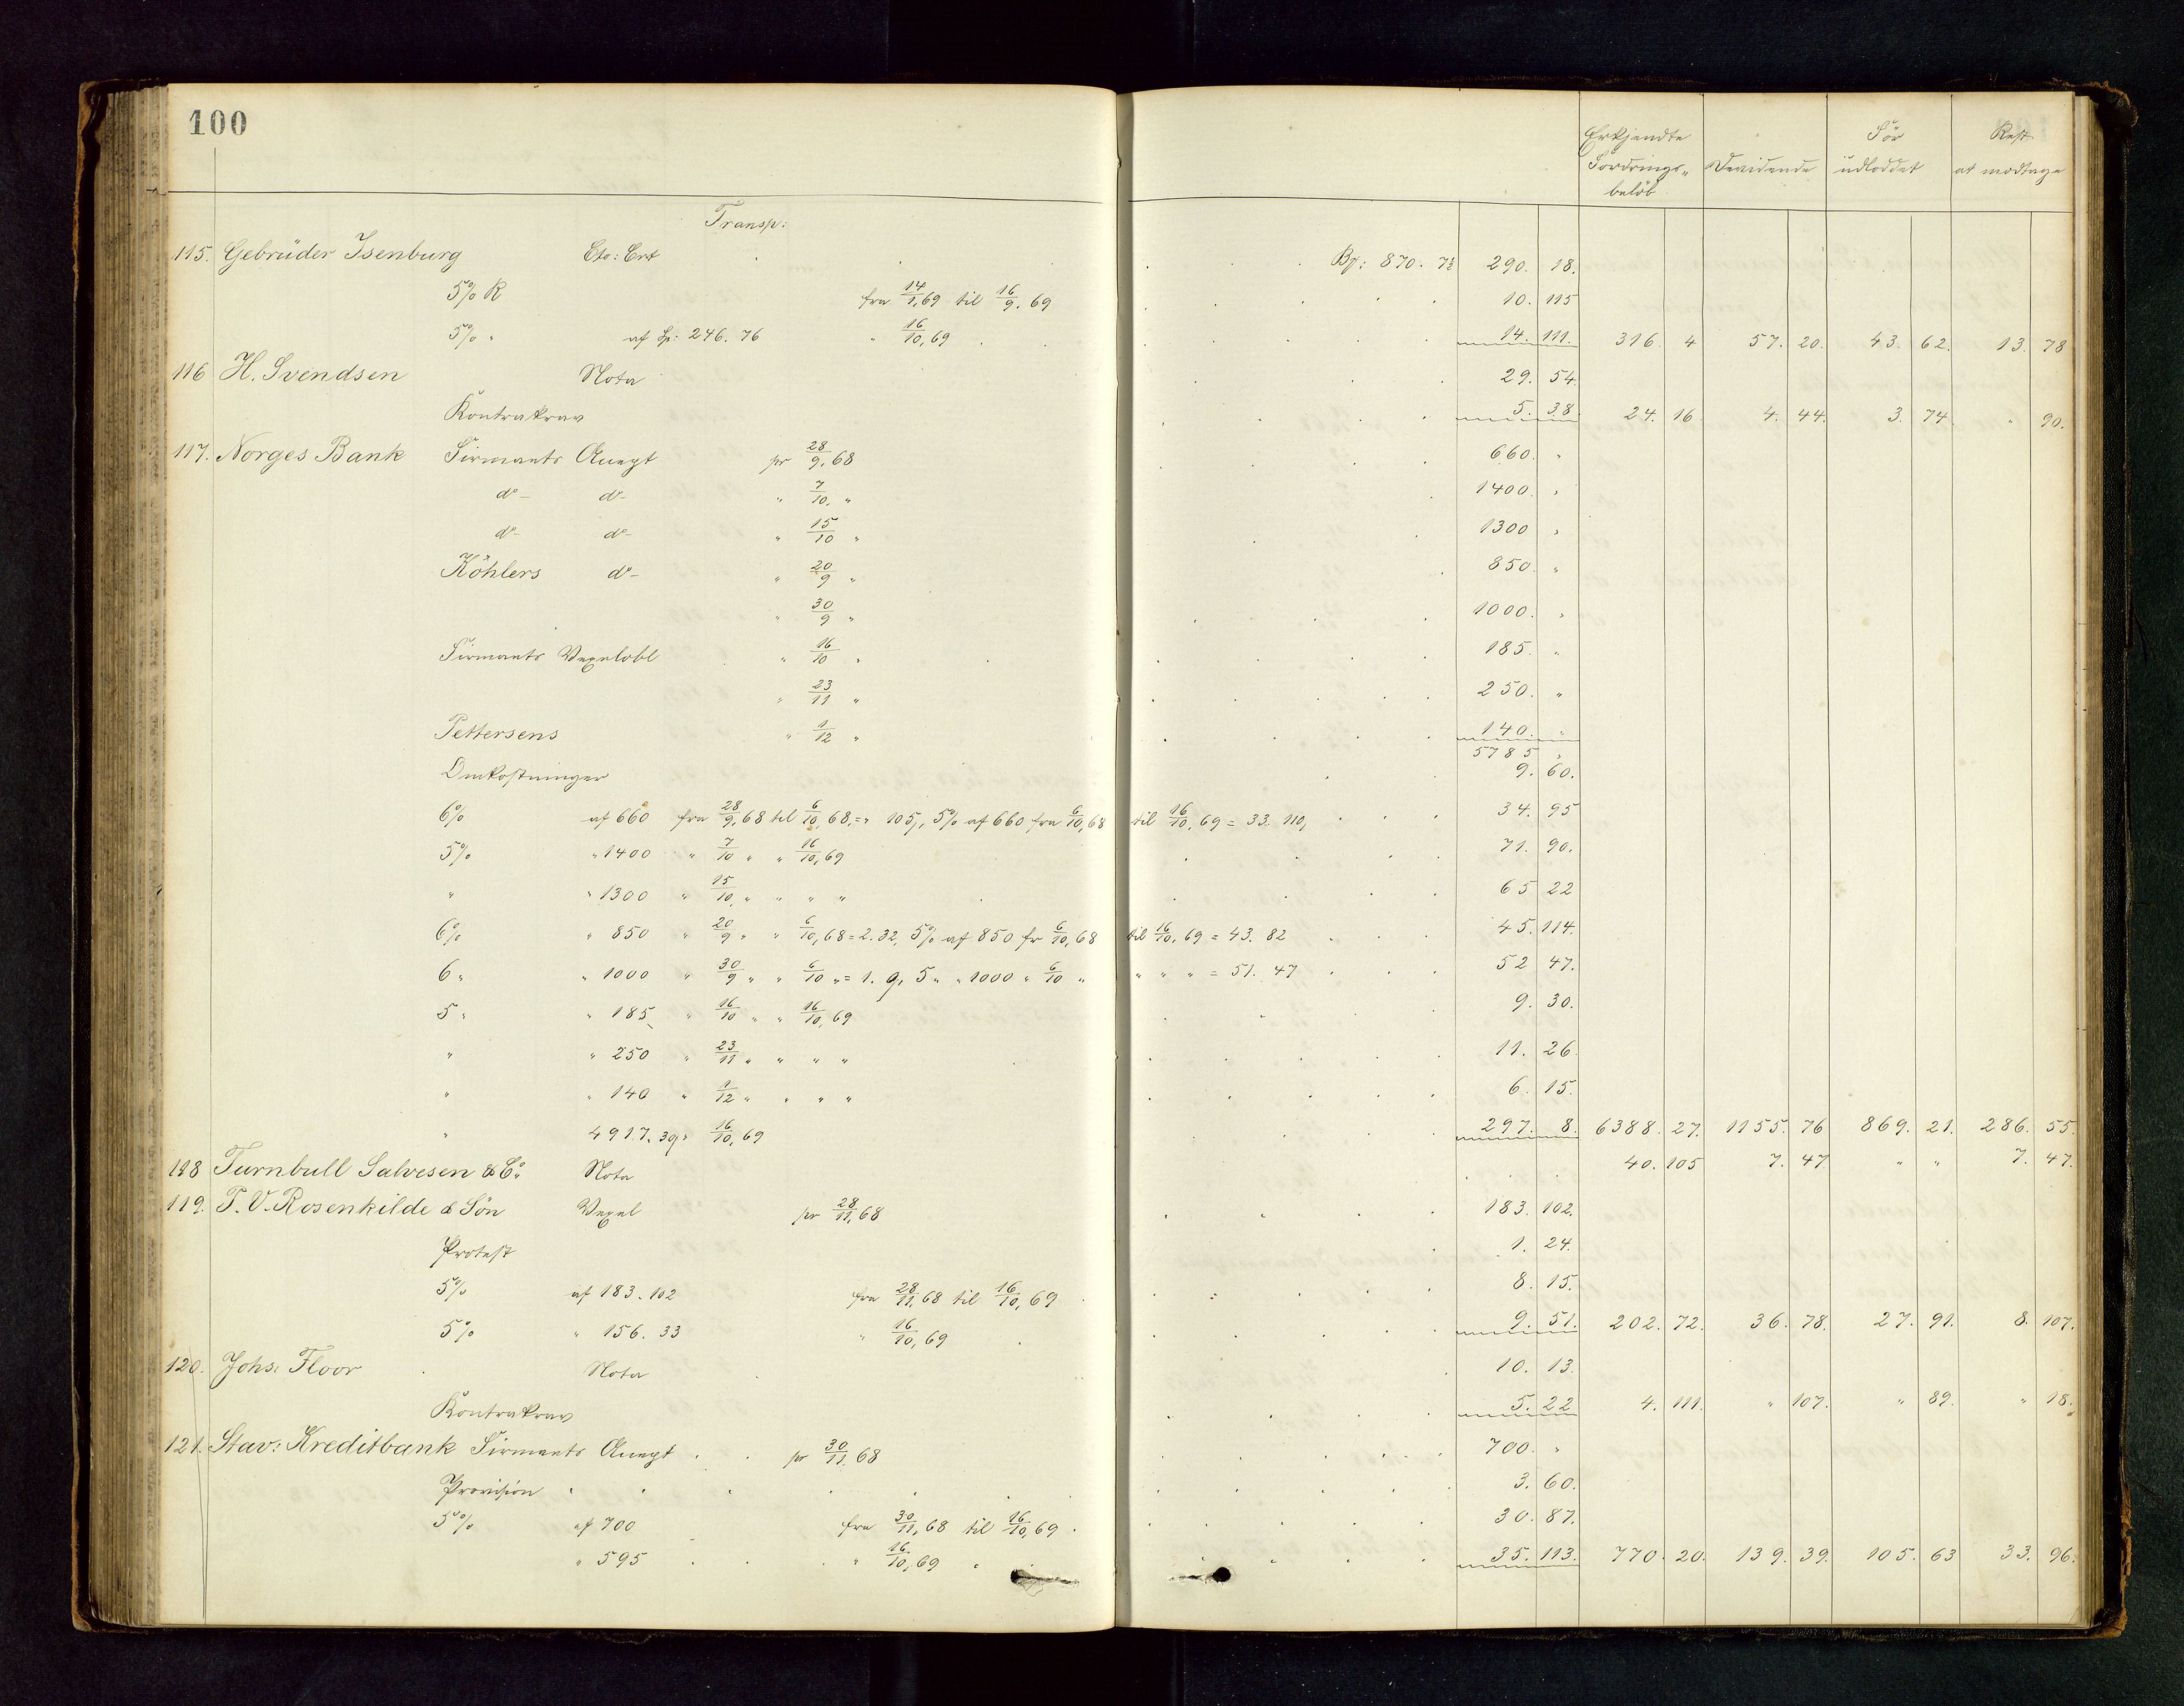 100
Erkjendte Fordrings„ beløb Devidende Før udloddet Rest at modtage
Transp:
115. Gebrüder Isenburg Cto: Crt Bf: 870. 7½ 290. 18.
5% R fra 14/1, 69 til 16/9. 69 10. 115
5% " af Sp: 246. 76 " 16/10, 69 14. 111. 316. 4 57. 20. 43. 62. 13. 78
116 H. Svendsen Nota 29. 54.
Kontrakrav 5. 38. 24. 16. 4. 44. 3. 74. " 90.
117. Norges Bank Firmants Accept pr 28/9. 68 660. "
do do " 7/10, " 1400. "
do do " 15/10 " 1300 "
Köhlers do " 20/9 " 850. "
" 30/9 " 1000. "
Firmants Vexelobl " 16/10 " 185. "
" 23/11 " 250. "
Pettersens " 1/12 " 140. "
5785 "
Omkostninger 9. 60.
6% af 660 fra 28/9. 68 til 6/10, 68, = " 105, 5% af 660 fra 6/10, 68 til 16/10, 69 = 33. 110, 34. 95
5% " 1400 " 7/10 " " 16/10, 69 71. 90.
" " 1300 " 15/10, " " " " 65 22
6% " 850 " 20/9 " " 6/10, 68 = 2. 32, 5% af 850 fr 6/10, 68 til 16/10. 69 = 43. 82 45. 114.
6 " " 1000 " 30/9 " " 6/10 " = 1. 9, 5 " " 1000 " 6/10 " " " " = 51. 47 52 47.
5 " " 185 " 16/10 " " 16/10, 69 9. 30.
" " 250 " 23/11 " " " " 11. 26.
" " 140 " 1/12 " " " " 6. 15.
" 4917. 39 " 16/10, 69 297. 8. 6388. 27. 1155. 76 869. 21. 286. 55.
118 Turnbull Salvesen & Co: Nota 40. 105 7. 47. " " 7. 47.
119. P. V. Rosenkilde & Søn Vexel pr 28/11, 68 183. 102.
Protest 1. 24.
5% af 183. 102 fra 28/11, 68 til 16/10, 69 8. 15.
5% " 156. 33 " 16/10, 69 9. 51. 202. 72. 36. 78. 27. 91. 8. 107.
120. Johs. Floor Nota 10. 13.
Kontrakrav 5. 22 4. 111. " 107. " 89. " 18.
121. Stav: Kreditbank Firmants Accept pr 30/11. 68 700. "
Provision 3. 60.
5% af 700 fra 30/11, 68 til 16/10, 69. 30. 87.
" 595 " 16/10, 69 35. 113. 770. 20. 139. 39. 105. 63 33. 96.